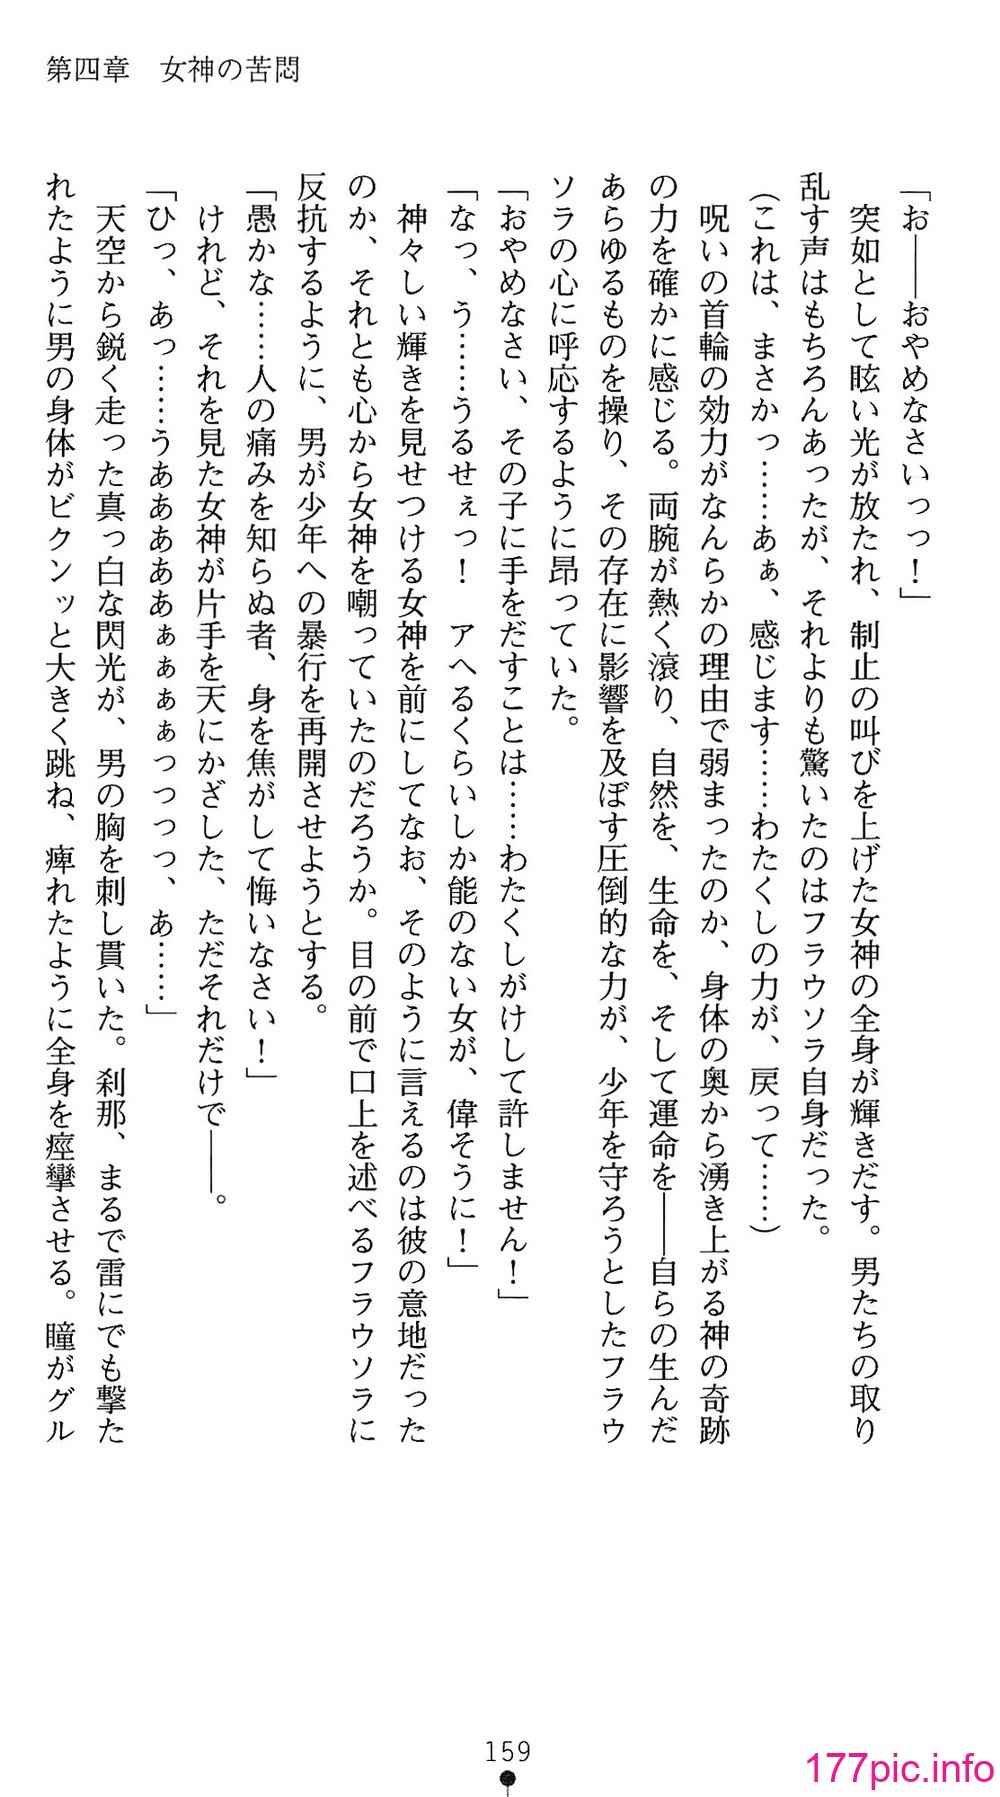 第四章　女神の苦悶
「お――おやめなさいっっ！」
　突如として眩い光が放たれ、制止の叫びを上げた女神の全身が輝きだす。男たちの取り
乱す声はもちろんあったが、それよりも驚いたのはフラウソラ自身だった。
（これは、まさかっ……あぁ、感じます……わたくしの力が、戻って……）
　呪いの首輪の効力がなんらかの理由で弱まったのか、身体の奥から湧き上がる神の奇跡
の力を確かに感じる。両腕が熱く滾り、自然を、生命を、そして運命を――自らの生んだ
あらゆるものを操り、その存在に影響を及ぼす圧倒的な力が、少年を守ろうとしたフラウ
ソラの心に呼応するように昂っていた。
「おやめなさい、その子に手をだすことは……わたくしがけして許しません！」
「なっ、う……うるせぇっ！　アヘるくらいしか能のない女が、偉そうに！」
　神々しい輝きを見せつける女神を前にしてなお、そのように言えるのは彼の意地だった
のか、それとも心から女神を嘲っていたのだろうか。目の前で口上を述べるフラウソラに
反抗するように、男が少年への暴行を再開させようとする。
「愚かな……人の痛みを知らぬ者、身を焦がして悔いなさい！」
　けれど、それを見た女神が片手を天にかざした、ただそれだけで――。
「ひっ、あっ……うあああああぁぁぁぁっっっっ、あ……」
　天空から鋭く走った真っ白な閃光が、男の胸を刺し貫いた。刹那、まるで雷にでも撃た
れたように男の身体がビクンッと大きく跳ね、痺れたように全身を痙攣させる。瞳がグル
159
177pic.info